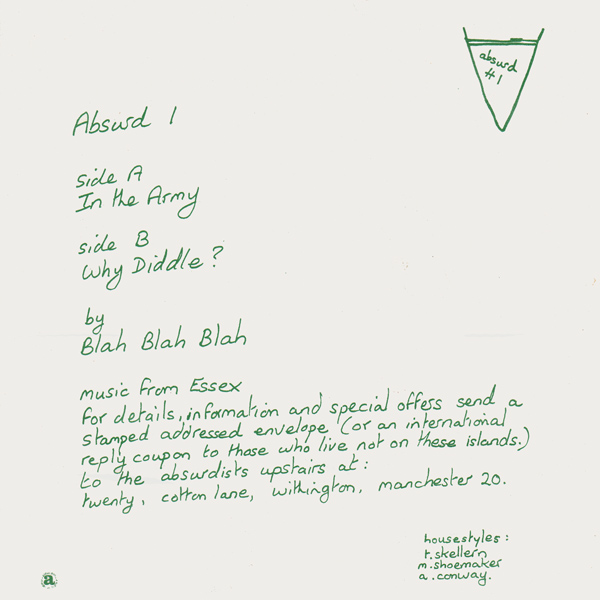 absurd
#1
Absurd 1
side A
In the Army
side B
Why Diddle?
by
Blah Blah Blah
music from Essex
for details, information and special offers send a
stamped addressed envelope (or an international
reply coupon to those who live not on these islands.)
to the absurdists upstairs at:
twenty, cotton lane, withington, manchester 20.
housestyles:
t. skellern
m. shoemaker
a. conway.
a